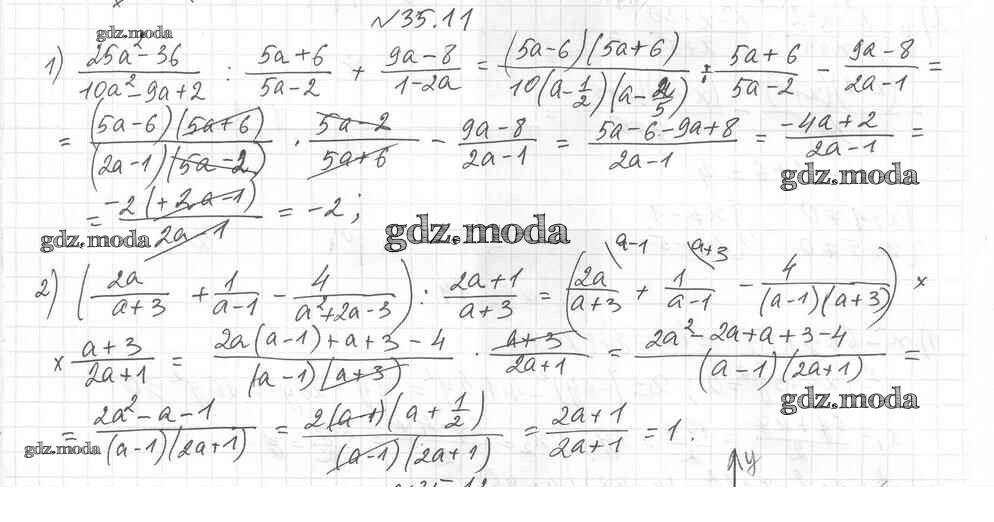 №35.11
gdz.moda
1) (25a² - 36)/(10a² - 9a + 2) : (5a + 6)/(5a - 2) + (9a - 8)/(1 - 2a) = ((5a - 6)(5a + 6))/(10(a - 1/2)(a - 2/5)) : (5a + 6)/(5a - 2) - (9a - 8)/(2a - 1) =
= ((5a - 6)(5a + 6))/((2a - 1)(5a - 2)) · (5a - 2)/(5a + 6) - (9a - 8)/(2a - 1) = (5a - 6 - 9a + 8)/(2a - 1) = (-4a + 2)/(2a - 1) =
gdz.moda
= (-2(+2a - 1))/(2a - 1) = -2;
gdz.moda
gdz.moda
2) (2a/(a + 3) + 1/(a - 1) - 4/(a² + 2a - 3)) : (2a + 1)/(a + 3) = (2a/(a + 3) \a-1 + 1/(a - 1) \a+3 - 4/((a - 1)(a + 3))) ×
× (a + 3)/(2a + 1) = (2a(a - 1) + a + 3 - 4)/((a - 1)(a + 3)) · (a + 3)/(2a + 1) = (2a² - 2a + a + 3 - 4)/((a - 1)(2a + 1)) =
gdz.moda
= (2a² - a - 1)/((a - 1)(2a + 1)) = (2(a - 1)(a + 1/2))/((a - 1)(2a + 1)) = (2a + 1)/(2a + 1) = 1.
gdz.moda
y